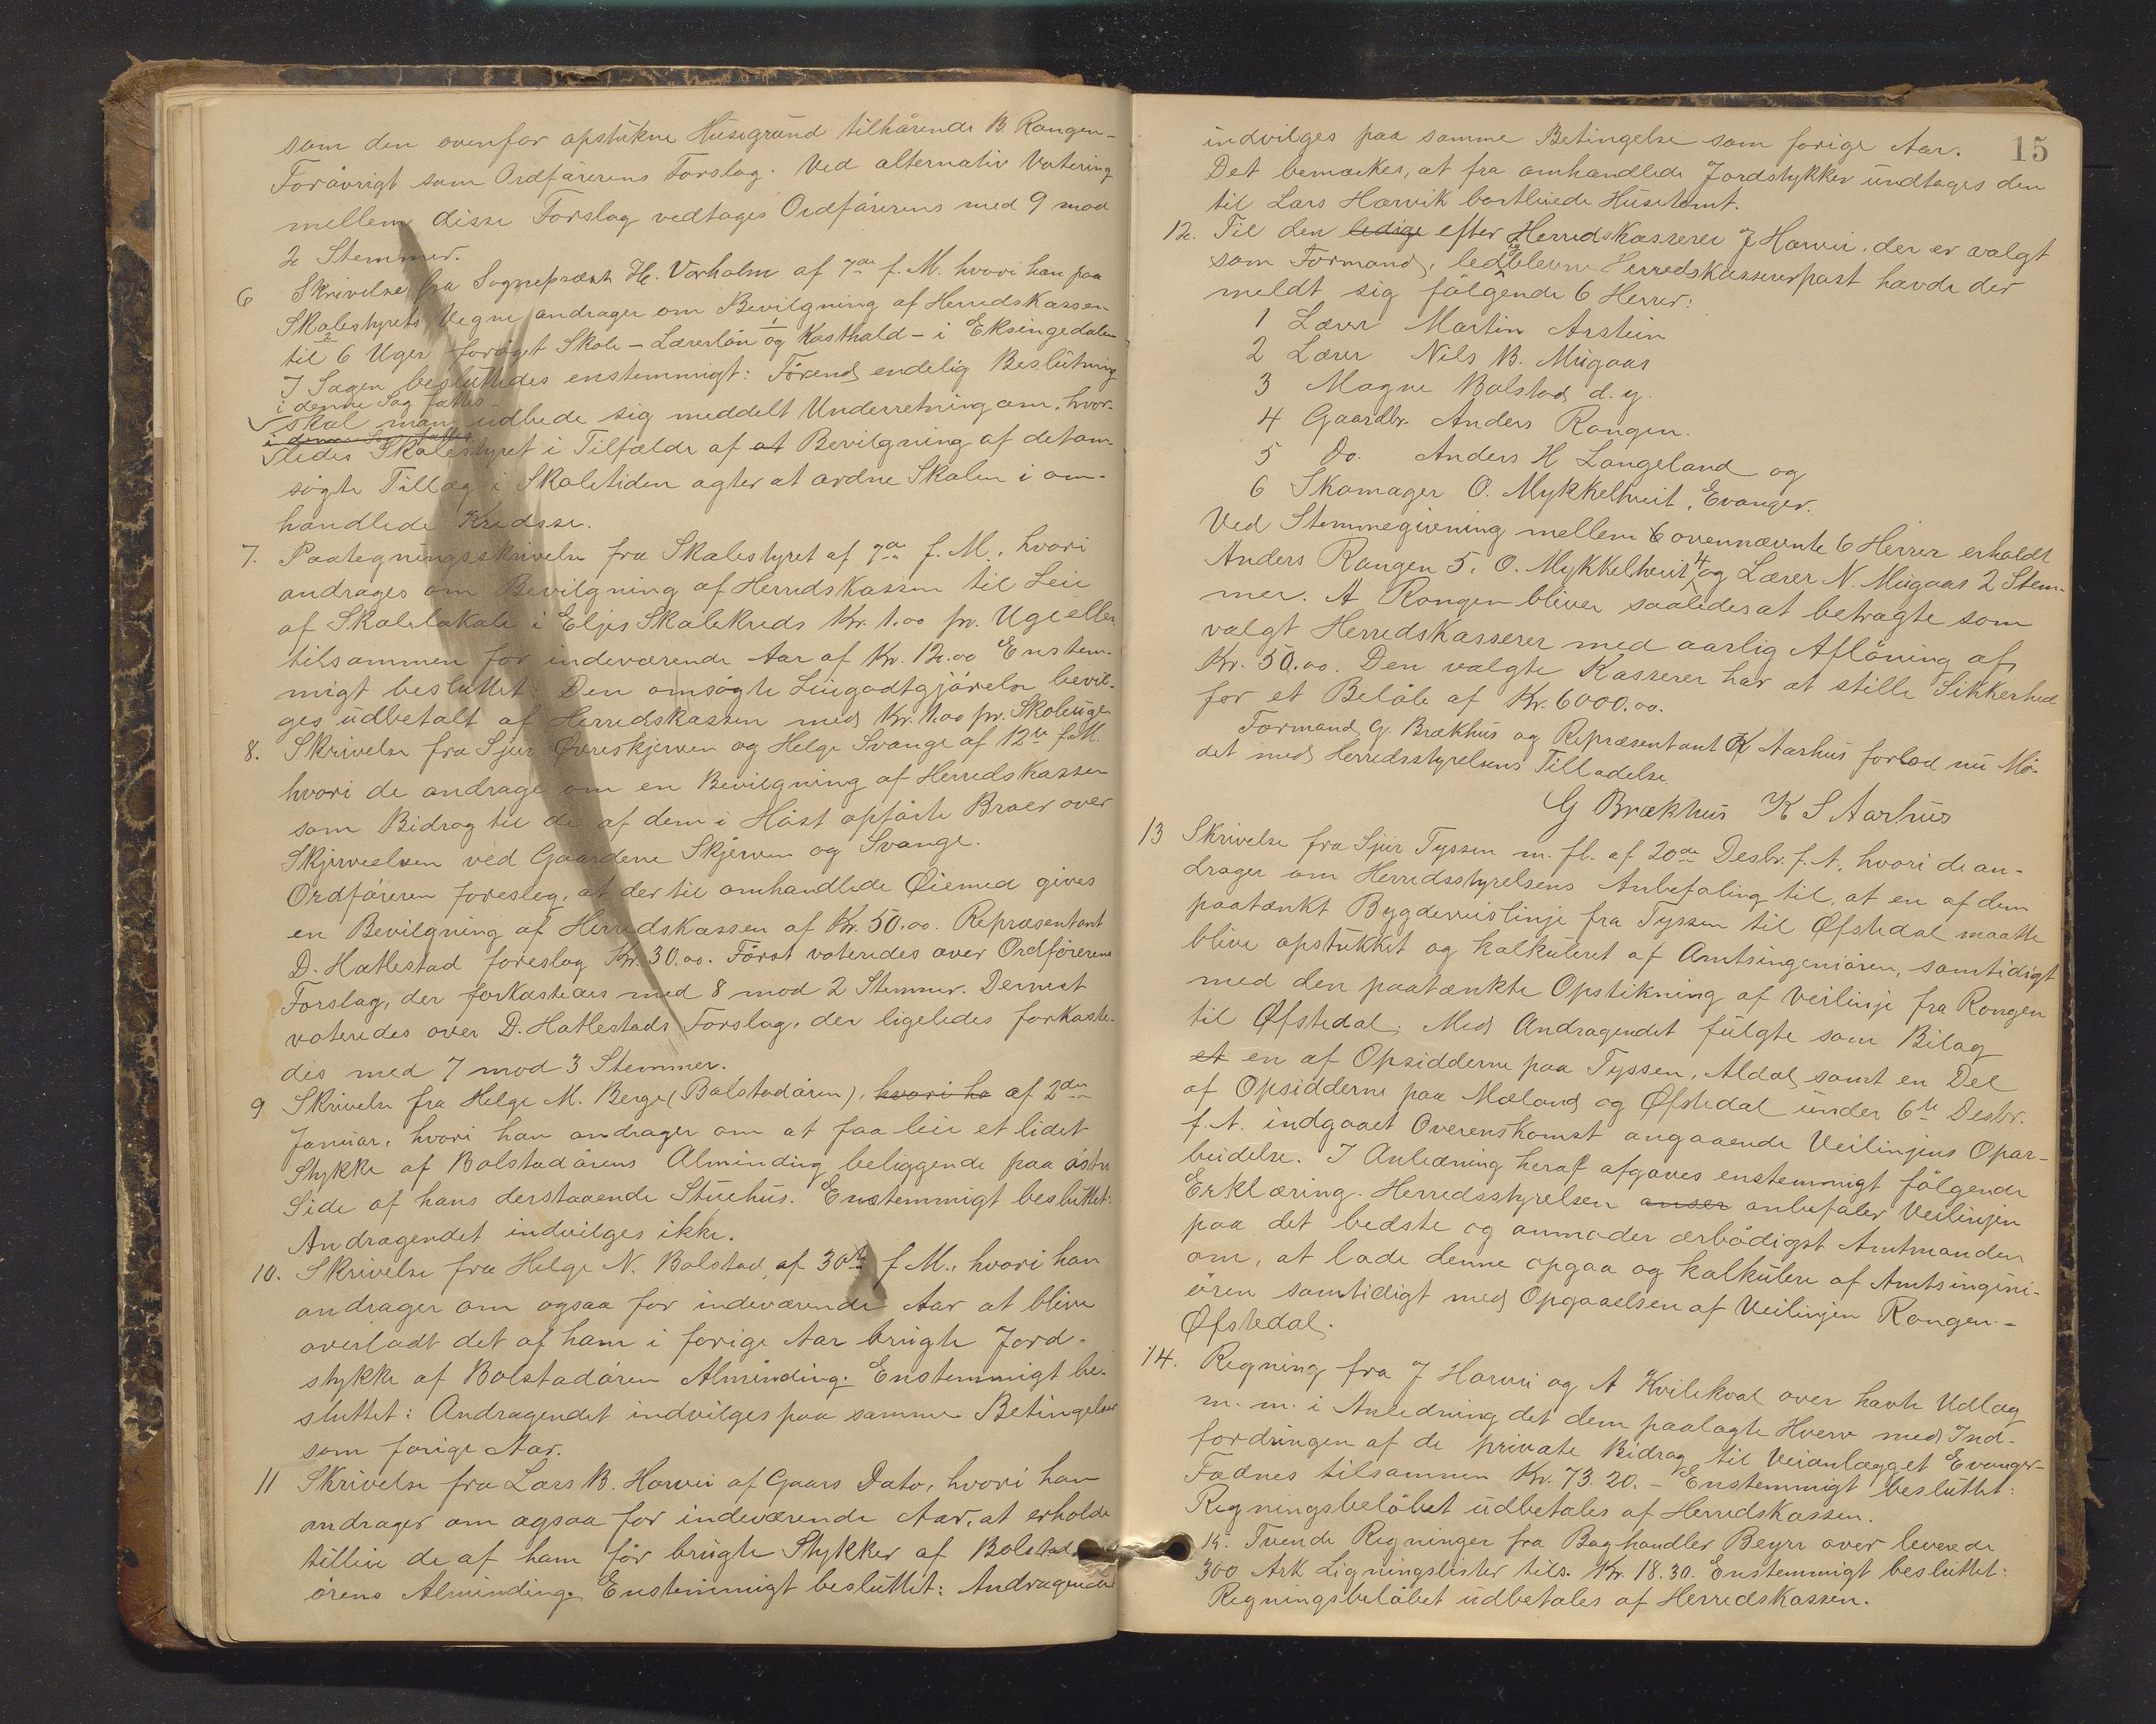 som den ovenfor opstukne Husegrund tilhørende B. Rongen-
Forøvrigt som Ordførerens Forslag. Ved alternativ Votering
mellem disse Forslag vedtages Ordførerens med 9 mod
2 Stemmer.
6 Skrivelse fra Sogneprest H. Varholm af 7de f. M. hvori han paa
Skolestyrets Vegne andrager om Bevilgning af Herredskassen
til 6 Uger forøget Skole - Lærerløn og Kosthold - i Eksingedalen
I Sagen besluttedes enstemmigt: Førend endelig Beslutning
i denne Sag fattes
skal man udbede sig meddelt Underretning om, hvor-
i denne Sag fattes
ledes Skolestyret i Tilfælde af at Bevilgning af det om-
søgte Tillæg i Skoletiden agter at ordne Skolen i om-
handlede Kredse.
7. Paategningsskrivelse fra Skolestyret af 7de f. M., hvori
andrages om Bevilgning af Herredskassen til Leie
af Skolelokale i Eljes Skolekreds Kr. 1.00 pr. Uge eller
tilsammen for indeværende Aar af Kr. 12.00 Enstem-
migt besluttet: Den omsøgte Leiegodtgjørelse bevil-
ges udbetalt af Herredskassen med Kr. 1.00 pr. Skoleuge.
8. Skrivelse fra Sjur Øvreskjerven og Helge Svange af 12te f. M.
hvori de andrage om en Bevilgning af Herredskassen
som Bidrag til de af dem i Høst opførte Broer over
Skjerveelven ved Gaardene Skjerven og Svange.
Ordføreren foreslog, at der til omhandlede Øiemed gives
en Bevilgning af Herredskassen af Kr. 50.00. Repræsentant
D. Hatlestad foreslog Kr. 30.00. Først voteredes over Ordførerens
Forslag, der forkastedes med 8 mod 2 Stemmer. Dernest
voteredes over D. Hatlestads Forslag, der ligeledes forkaste-
des med 7 mod 3 Stemmer.
9 Skrivelse fra Helge M. Berge (Bolstadøren), hvori ha af 2den
Januar, hvori han andrager om at faa leie et lidet
Stykke af Bolstadørens Alminding beliggende paa østre
Side af hans derstaaende Stuehus. Enstemmigt besluttet:
Andragendet indvilges ikke.
10. Skrivelse fra Helge N. Bolstad af 30te f. M., hvori han
andrager om ogsaa for indeværende Aar at blive
overladt det af ham i forige Aar brugte Jord-
stykke af Bolstadøren Alminding. Enstemmigt be-
sluttet: Andragendet indvilges paa samme Betingelse
som forige Aar.
11 Skrivelse fra Lars B. Horvei af Gaars Dato, hvori han
andrager om ogsaa for indeværende Aar, at erholde
tilleie de af ham før brugte Stykker af Bolstad-
ørens Alminding. Enstemmigt besluttet: Andragendet
15
indvilges paa samme Betingelse som forige Aar.
Det bemærkes, at fra omhandlede Jordstykker undtages den
til Lars Horvik bortleiede Husetomt.
12. Til den ledige efter Herredskasserer J Horvei, der er valgt
som Formand, ledigblevne Herredskassererpost havde der
meldt sig følgende 6 Herrer:
1 Lærer Martin Arstein
2 Lærer Nils B. Mugaas
3 Magne Bolstad d. y.
4 Gaardbr. Anders Rongen.
5 Do. Anders H Langeland og
6 Skomager O. Mykkeltveit, Evanger.
Ved Stemmegivning mellem 6 ovennævnte 6 Herrer erholdt
Anders Rongen 5, O. Mykkeltveit 4 og Lærer N. Mugaas 2 Stem-
mer. A Rongen bliver saaledes at betragte som
valgt Herredskasserer med aarlig Afløning af
Kr. 50.00. Den valgte Kasserer har at stille Sikkerhed
for et Beløb af Kr. 6000.00.
Formand G. Brækhus og Repræsentant K Aarhus forlod nu Mø-
det med Herredsstyrelsens Tilladelse
G Brækhus K S Aarhus
13 Skrivelse fra Sjur Tyssen m. fl. af 20de Desbr. f. A., hvori de an-
drager om Herredsstyrelsens Anbefaling til, at en af dem
paatænkt Bygdeveislinje fra Tyssen til Øfstedal maatte
blive opstukket og kalkuleret af Amtsingeniøren, samtidigt
med den paatænkte Opstikning af Veilinje fra Rongen
til Øfstedal. Med Andragendet fulgte som Bilag
et en af Opsidderne paa Tyssen, Aldal samt en Del
af Opsidderne paa Mæland og Øfstedal under 6te Desbr.
f. A. indgaaet Overenskomst angaaende Veilinjens Opar-
beidelse. I Anledning heraf afgaves enstemmigt følgende
Erklæring. Herredsstyrelsen anser anbefaler Veilinjen
paa det bedste og anmoder ærbødigst Amtmanden
om, at lade denne opgaa og kalkulere af Amtsingeni-
øren samtidigt med Opgaaelsen af Veilinjen Rongen -
Øfstedal.
14. Regning fra J Horvei og A Kvilekval over havte Udlæg
m. m. i Anledning det dem paalagte Hverv med Ind-
fordringen af de private Bidrag til Veianlægget Evanger-
Fadnes tilsammen Kr. 73.20. - Enstemmigt besluttet:
Regningsbeløbet udbetales af Herredskassen.
15. Tvende Regninger fra Boghandler Beyer over leverede
300 Ark Ligningslister tils. Kr. 18.30. Enstemmigt besluttet:
Regningsbeløbet udbetales af Herredskassen.